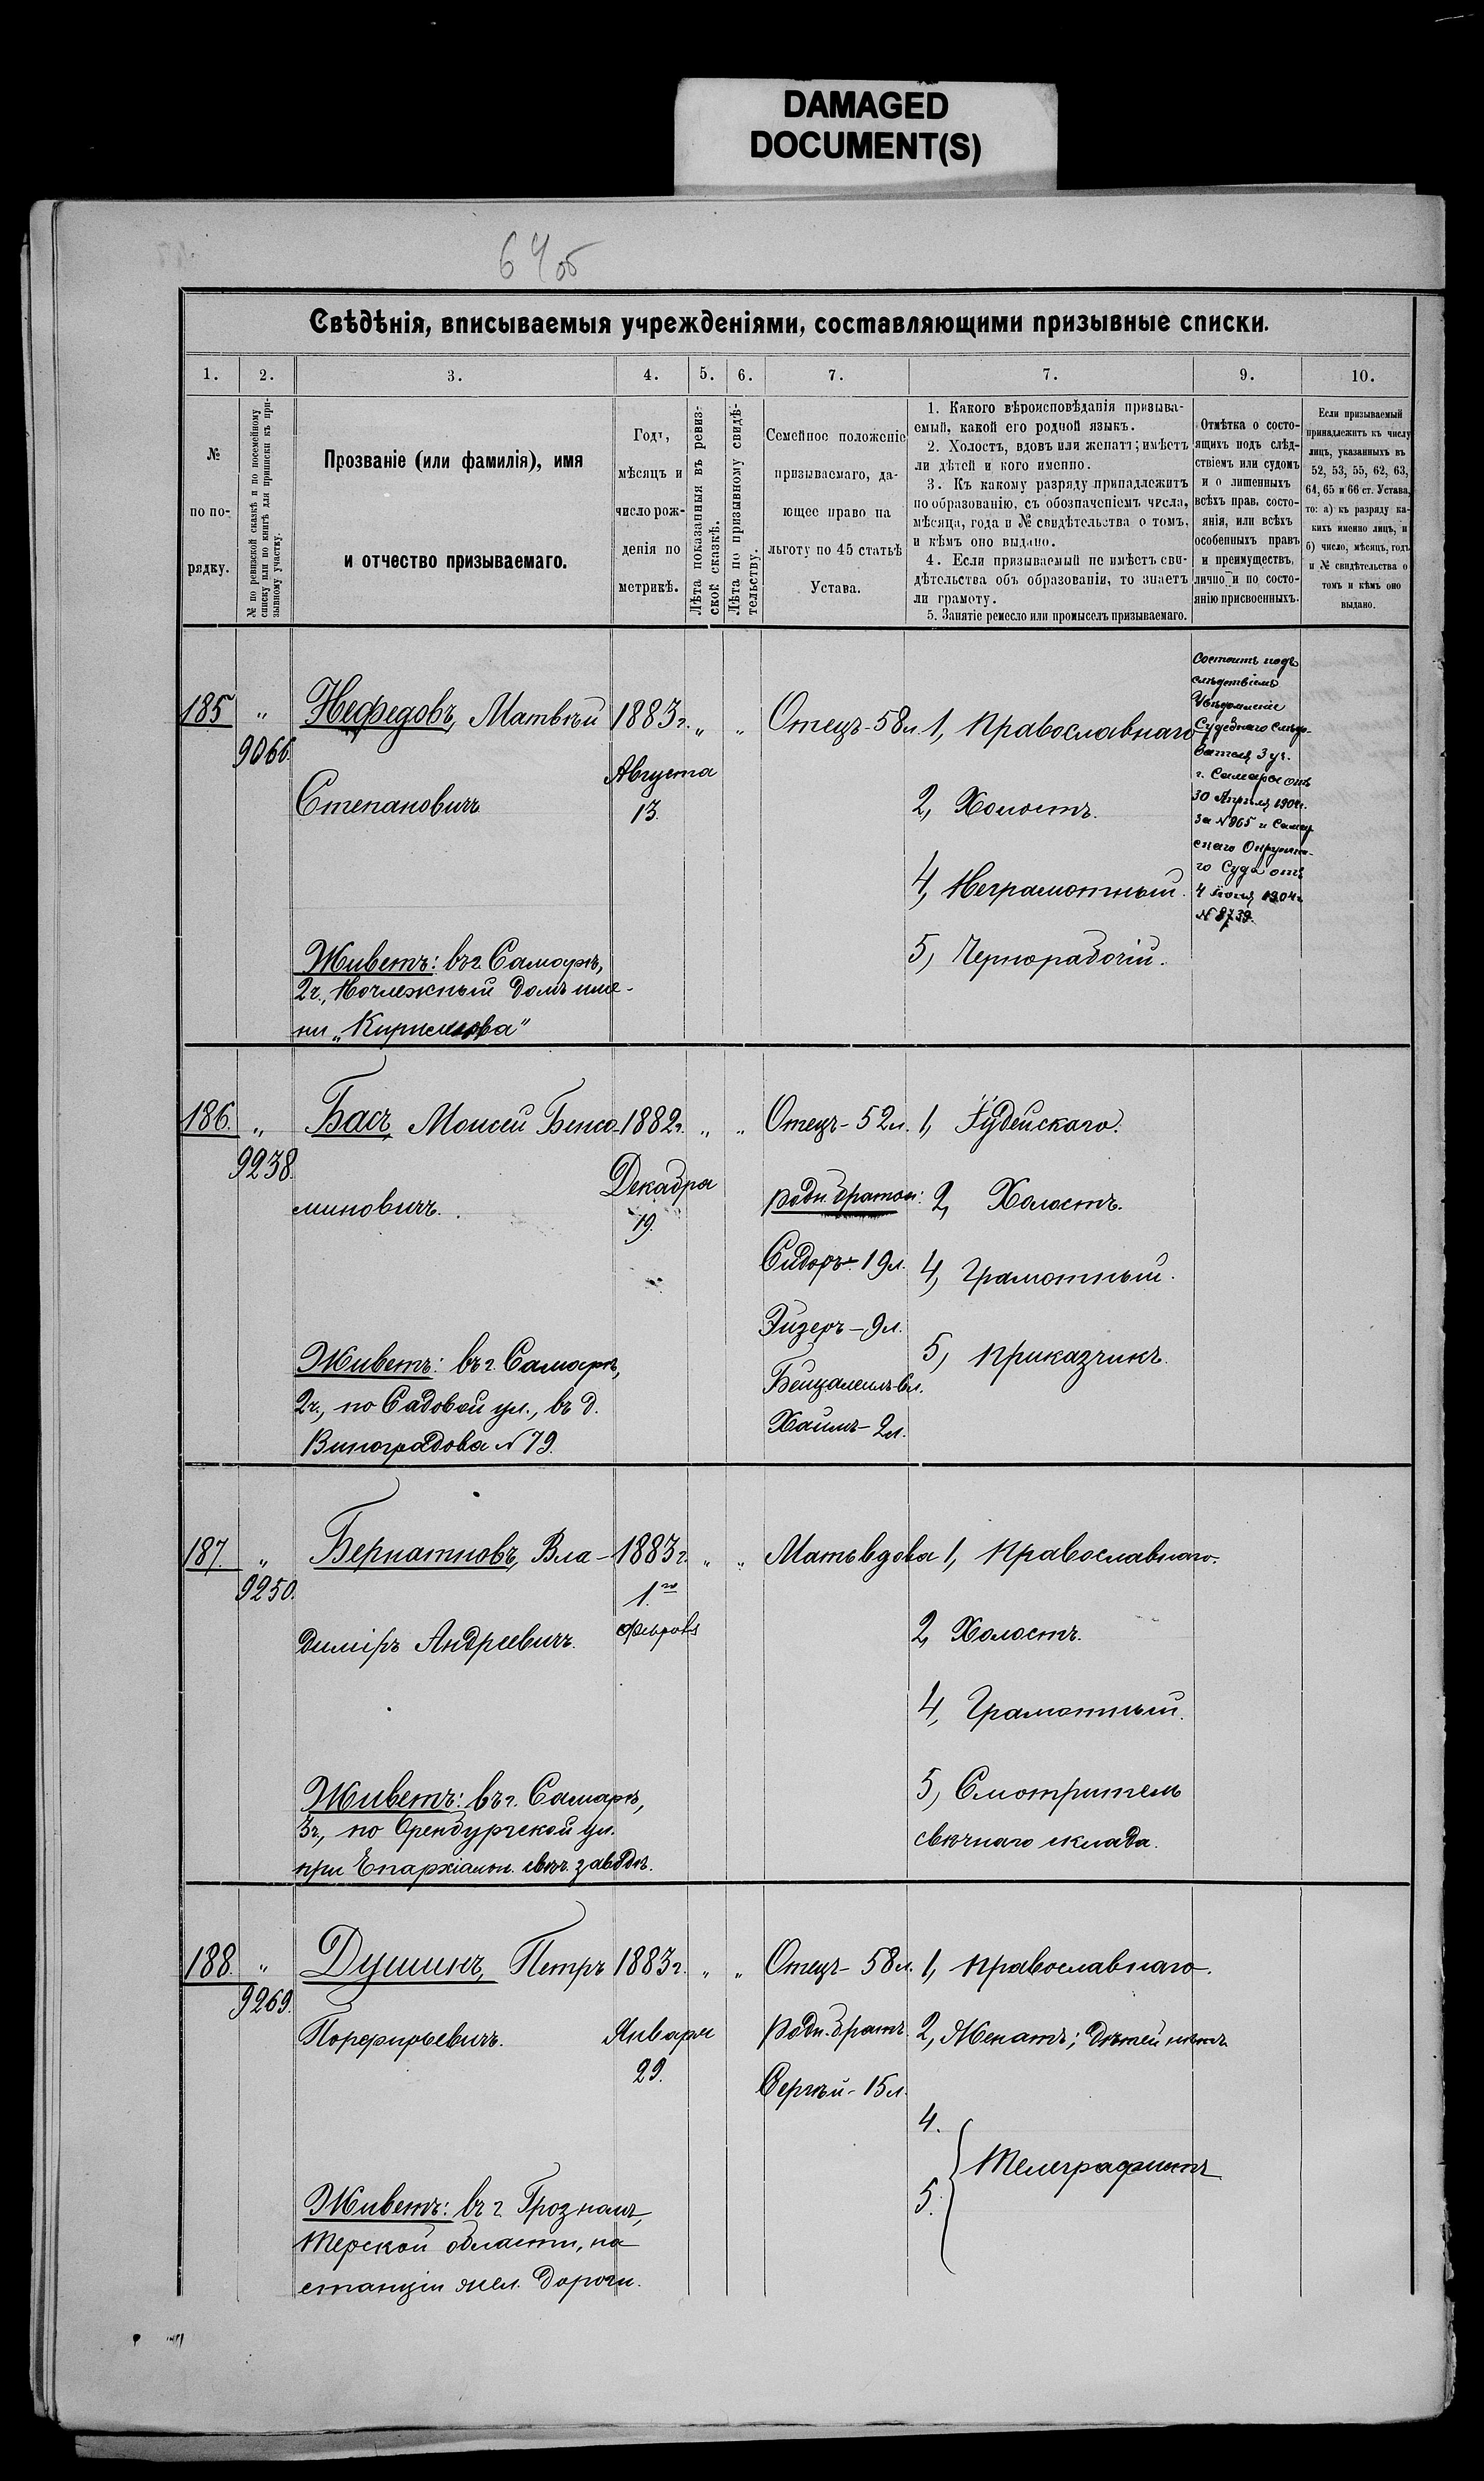 DAMAGED
DOCUMENT(S)
64 об
Свѣдѣнія, вписываемыя учрежденіями, составляющими призывные списки.
1. 2. 3. 4. 5. 6. 7. 7. 9. 10.
№
по по-
рядку.
№ по ревизской сказкѣ и по посемейному
списку или по книгѣ для приписки къ при-
зывному участку.
Прозваніе (или фамилія), имя
и отчество призываемаго.
Годъ,
мѣсяцъ и
число рож-
денія по
метрикѣ.
Лѣта показанныя въ ревиз-
ской сказкѣ.
Лѣта по призывному свидѣ-
тельству.
Семейное положеніе
призываемаго, да-
ющее право на
льготу по 45 статьѣ
Устава.
1. Какого вѣроисповѣданія призыва-
емый, какой его родной языкъ.
2. Холостъ, вдовъ или женатъ; имѣетъ
ли дѣтей и кого именно.
3. Къ какому разряду принадлежитъ
по образованію, съ обозначеніемъ числа,
мѣсяца, года и № свидѣтельства о томъ,
и кѣмъ оно выдано.
4. Если призываемый не имѣетъ сви-
дѣтельства объ образованіи, то знаетъ
ли грамоту.
5. Занятіе ремесло или промыселъ призываемаго.
Отмѣтка о состо-
ящихъ подъ слѣд-
ствіемъ или судомъ
и о лишенныхъ
всѣхъ прав, состо-
янія, или всѣхъ
особенныхъ правъ
и преимуществъ,
лично и по состо-
янію присвоенныхъ.
Если призываемый
принадлежитъ къ числу
лицъ, указанныхъ въ
52, 53, 55, 62, 63,
64, 65 и 66 ст. Устава,
то: а) къ разряду ка-
кихъ именно лицъ, и
б) число, мѣсяцъ, годъ
и № свидѣтельства о
томъ и кѣмъ оно
выдано.
185 „
9066.
Нефедовъ, Матвѣй
Степановичъ
Живетъ: въ г. Самарѣ,
2 ч., Ночлежный домъ име-
ни „Кириллова"
1883 г.
Августа
13.
„ „
Отецъ - 58 л.
1, Православнаго
2, Холостъ.
4, Неграмотный.
5, Чернорабочій.
Состоитъ подъ
слѣдствіемъ
Увѣдомленіе
Судебнаго Слѣдо-
вателя 3 уч.
г. Самары отъ
30 Апрѣля 1904 г.
за № 865 и Самар
скаго Окружна-
го Суда отъ
4 Іюня 1904 г.
№ 8739.
186. „
9238.
Басъ Моисей Бенсо-
миновичъ.
Живетъ: въ г. Самарѣ,
2 ч., по Садовой ул., въ д.
Виноградова № 79.
1882 г.
Декабря
19.
„ „
Отецъ - 52 л.
родн. братья:
Сидоръ - 19 л.
Гизеръ - 9 л.
Бецалелъ - 6 л.
Хаимъ - 2 л.
1, Іудейскаго.
2, Холостъ.
4, Грамотный.
5, Приказчикъ.
187. „
9250.
Бернатновъ, Вла-
диміръ Андреевичъ.
Живетъ: въ г. Самарѣ,
3 ч., по Оренбургской ул.
при Епархіальн. свѣч. заводѣ.
1883 г.
1.го
Февраля
„ „
Мать вдова
1, Православнаго.
2, Холостъ.
4, Грамотный.
5, Смотритель
свѣчнаго склада.
188. „
9269.
Душинъ, Петръ
Порфирьевичъ.
Живетъ: въ г. Грозномъ,
Терской области, на
станціи жел. дороги.
1883 г.
Января
29.
„ „
Отецъ - 58 л.
родн. братъ
Сергѣй - 15 л.
1, Православнаго.
2, Женатъ; дѣтей нѣтъ
4.
5. } Телеграфистъ